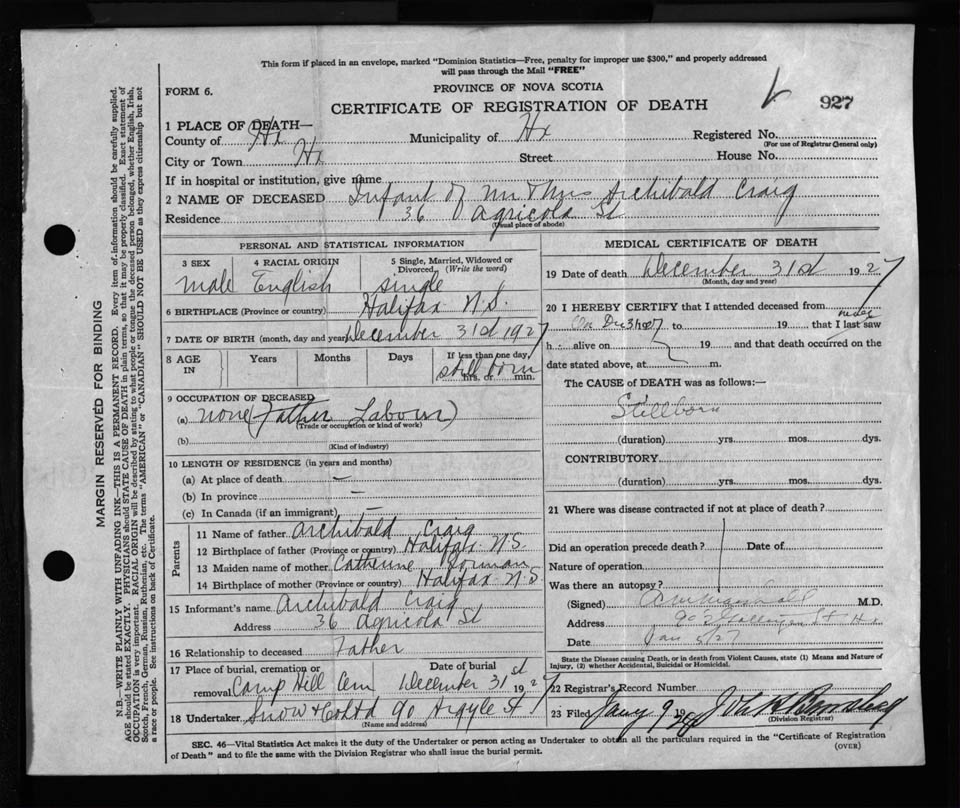 This form if placed in an envelope, marked "Dominion Statistics—Free, penalty for improper use $300," and properly addressed
will pass through the Mail "FREE"
FORM 6.
PROVINCE OF NOVA SCOTIA
927
CERTIFICATE OF REGISTRATION OF DEATH
1 PLACE OF DEATH—
County of Hx Municipality of Hx Registered No.
(For use of Registrar General only)
City or Town Hx Street House No.
If in hospital or institution, give name
2 NAME OF DECEASED Infant of Mr & Mrs Archibald Craig
Residence 36 Agricola St
(Usual place of abode)
PERSONAL AND STATISTICAL INFORMATION
3 SEX 4 RACIAL ORIGIN 5 Single, Married, Widowed or Divorced (Write the word)
male English single
6 BIRTHPLACE (Province or country) Halifax N.S.
7 DATE OF BIRTH (month, day and year) December 31st 1927
8 AGE IN Years Months Days If less than one day, hrs. or min.
still born
9 OCCUPATION OF DECEASED
(a) none (Father Labour)
(Trade or occupation or kind of work)
(b)
(Kind of industry)
10 LENGTH OF RESIDENCE (in years and months)
(a) At place of death —
(b) In province —
(c) In Canada (if an immigrant) —
Parents
11 Name of father Archibald Craig
12 Birthplace of father (Province or country) Halifax N.S
13 Maiden name of mother Catherine
14 Birthplace of mother (Province or country) Halifax N.S
15 Informant's name Archibald Craig
Address 36 Agricola St
16 Relationship to deceased Father
17 Place of burial, cremation or Date of burial
removal Camp Hill Cem December 31st 1927
18 Undertaker Snow & Co Ltd 90 Argyle St
(Name and address)
MEDICAL CERTIFICATE OF DEATH
19 Date of death December 31st 1927
(Month, day and year)
20 I HEREBY CERTIFY that I attended deceased from
to 19 that I last saw
h alive on 19 and that death occurred on the
date stated above, at m.
The CAUSE of DEATH was as follows:—
Stillborn
(duration) yrs. mos. dys.
CONTRIBUTORY
(duration) yrs. mos. dys.
21 Where was disease contracted if not at place of death?
Did an operation precede death? Date of
Nature of operation
Was there an autopsy?
(Signed) M.D.
Address St Hx
Date Jan 5/27
State the Disease causing Death, or in death from Violent Causes, state (1) Means and Nature of
Injury, (2) whether Accidental, Suicidal or Homicidal.
22 Registrar's Record Number
23 Filed Jany 9 19
(Division Registrar)
SEC. 46—Vital Statistics Act makes it the duty of the Undertaker or person acting as Undertaker to obtain all the particulars required in the "Certificate of Registration
of Death" and to file the same with the Division Registrar who shall issue the burial permit.
(OVER)
MARGIN RESERVED FOR BINDING
N.B.—WRITE PLAINLY WITH UNFADING INK—THIS IS A PERMANENT RECORD. Every item of information should be carefully supplied.
AGE should be stated EXACTLY. PHYSICIANS should STATE CAUSE OF DEATH in plain terms, so that it may be properly classified. Exact statement of
OCCUPATION is very important. RACIAL ORIGIN will be described by stating to what people or tongue the deceased person belonged, whether English, Irish,
Scotch, French, German, Russian, Ruthenian etc. The terms "AMERICAN" or "CANADIAN" SHOULD NOT BE USED as they express citizenship but not
a race or people. See instructions on back of Certificate.